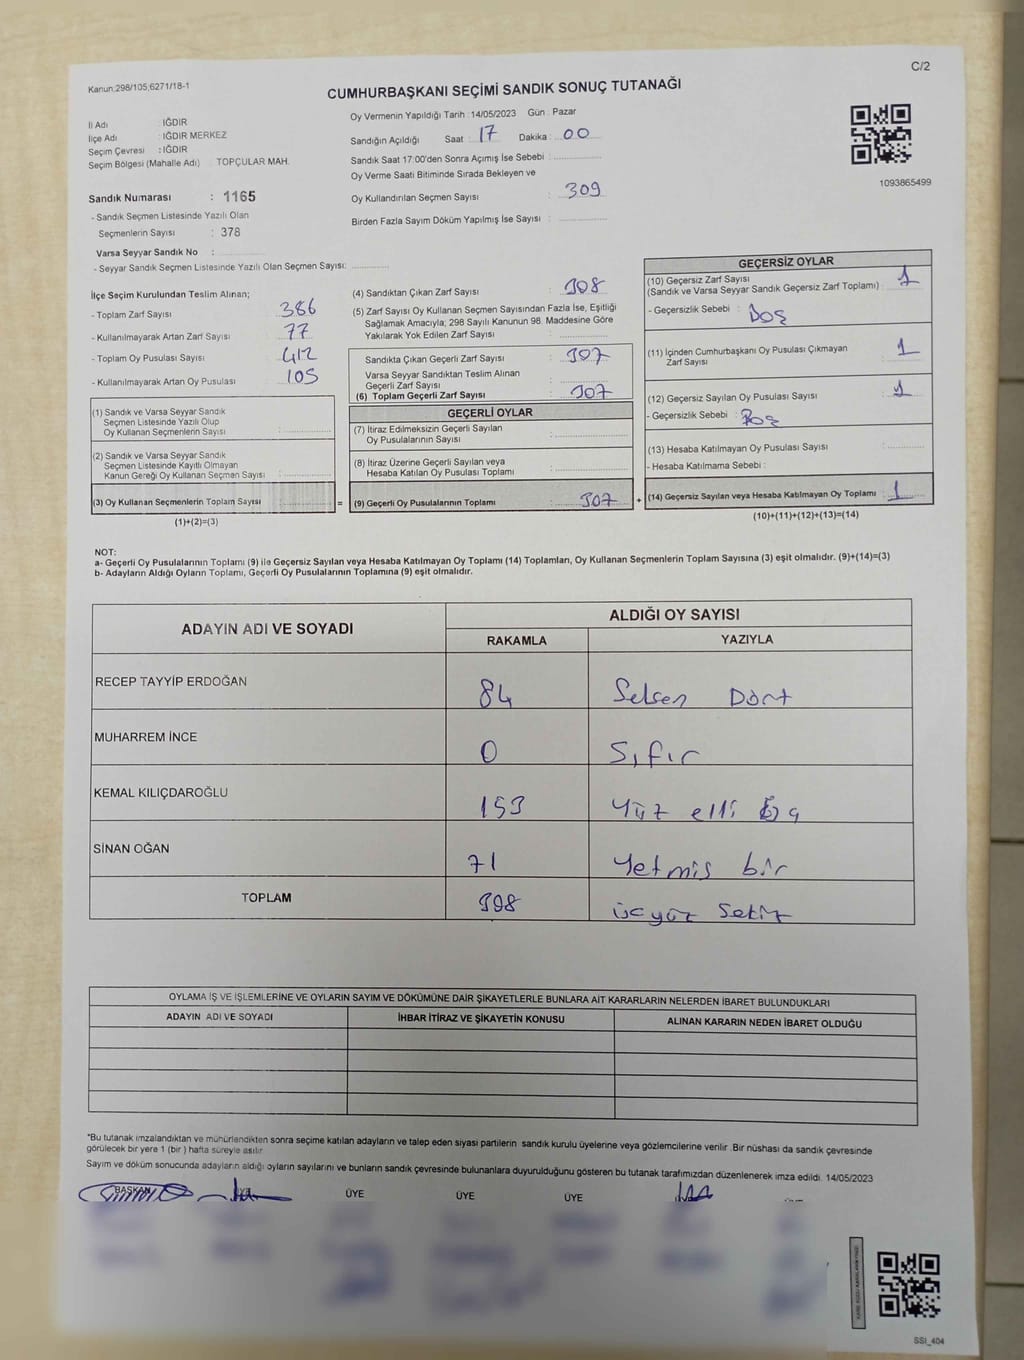 C/2
Kanun;298/105;6271/18-1
CUMHURBAŞKANI SEÇİMİ SANDIK SONUÇ TUTANAĞI
İl Adı : IĞDIR
İlçe Adı : IĞDIR MERKEZ
Seçim Çevresi : IĞDIR
Seçim Bölgesi (Mahalle Adı) : TOPÇULAR MAH.
Sandık Numarası : 1165
- Sandık Seçmen Listesinde Yazılı Olan
Seçmenlerin Sayısı : 378
Varsa Seyyar Sandık No :
- Seyyar Sandık Seçmen Listesinde Yazılı Olan Seçmen Sayısı:
Oy Vermenin Yapıldığı Tarih :14/05/2023 Gün : Pazar
Sandığın Açıldığı Saat : 17 Dakika : 00
Sandık Saat 17:00'den Sonra Açımış İse Sebebi :
Oy Verme Saati Bitiminde Sırada Bekleyen ve
Oy Kullandırılan Seçmen Sayısı : 309
Birden Fazla Sayım Döküm Yapılmış İse Sayısı :
1093865499
İlçe Seçim Kurulundan Teslim Alınan;
- Toplam Zarf Sayısı : 386
- Kullanılmayarak Artan Zarf Sayısı : 77
- Toplam Oy Pusulası Sayısı : 412
- Kullanılmayarak Artan Oy Pusulası : 105
(1) Sandık ve Varsa Seyyar Sandık
Seçmen Listesinde Yazılı Olup
Oy Kullanan Seçmenlerin Sayısı :
(2) Sandık ve Varsa Seyyar Sandık
Seçmen Listesinde Kayıtlı Olmayan
Kanun Gereği Oy Kullanan Seçmen Sayısı :
(3) Oy Kullanan Seçmenlerin Toplam Sayısı : =
(1)+(2)=(3)
(4) Sandıktan Çıkan Zarf Sayısı : 308
(5) Zarf Sayısı Oy Kullanan Seçmen Sayısından Fazla İse, Eşitliği
Sağlamak Amacıyla; 298 Sayılı Kanunun 98. Maddesine Göre
Yakılarak Yok Edilen Zarf Sayısı :
Sandıkta Çıkan Geçerli Zarf Sayısı : 307
Varsa Seyyar Sandıktan Teslim Alınan
Geçerli Zarf Sayısı :
(6) Toplam Geçerli Zarf Sayısı : 307
GEÇERLİ OYLAR
(7) İtiraz Edilmeksizin Geçerli Sayılan
Oy Pusulalarının Sayısı :
(8) İtiraz Üzerine Geçerli Sayılan veya
Hesaba Katılan Oy Pusulası Toplamı :
(9) Geçerli Oy Pusulalarının Toplamı : 307 +
GEÇERSİZ OYLAR
(10) Geçersiz Zarf Sayısı
(Sandık ve Varsa Seyyar Sandık Geçersiz Zarf Toplamı) : 1
- Geçersizlik Sebebi : Boş
(11) İçinden Cumhurbaşkanı Oy Pusulası Çıkmayan
Zarf Sayısı : 1
(12) Geçersiz Sayılan Oy Pusulası Sayısı : 1
- Geçersizlik Sebebi : Boş
(13) Hesaba Katılmayan Oy Pusulası Sayısı :
- Hesaba Katılmama Sebebi :
(14) Geçersiz Sayılan veya Hesaba Katılmayan Oy Toplamı : 1
(10)+(11)+(12)+(13)=(14)
NOT:
a- Geçerli Oy Pusulalarının Toplamı (9) ile Geçersiz Sayılan veya Hesaba Katılmayan Oy Toplamı (14) Toplamları, Oy Kullanan Seçmenlerin Toplam Sayısına (3) eşit olmalıdır. (9)+(14)=(3)
b- Adayların Aldığı Oyların Toplamı, Geçerli Oy Pusulalarının Toplamına (9) eşit olmalıdır.
ADAYIN ADI VE SOYADI ALDIĞI OY SAYISI
RAKAMLA YAZIYLA
RECEP TAYYİP ERDOĞAN 84 Seksen Dört
MUHARREM İNCE 0 Sıfır
KEMAL KILIÇDAROĞLU 153 Yüz elli
SİNAN OĞAN 71 Yetmis bir
TOPLAM 308 üçyüz Sekiz
OYLAMA İŞ VE İŞLEMLERİNE VE OYLARIN SAYIM VE DÖKÜMÜNE DAİR ŞİKAYETLERLE BUNLARA AİT KARARLARIN NELERDEN İBARET BULUNDUKLARI
ADAYIN ADI VE SOYADI İHBAR İTİRAZ VE ŞİKAYETİN KONUSU ALINAN KARARIN NEDEN İBARET OLDUĞU
*Bu tutanak imzalandıktan ve mühürlendikten sonra seçime katılan adayların ve talep eden siyasi partilerin sandık kurulu üyelerine veya gözlemcilerine verilir. Bir nüshası da sandık çevresinde
görülecek bir yere 1 (bir ) hafta süreyle asılır.
Sayım ve döküm sonucunda adayların aldığı oyların sayılarını ve bunların sandık çevresinde bulunanlara duyurulduğunu gösteren bu tutanak tarafımızdan düzenlenerek imza edildi. 14/05/2023
BAŞKAN ÜYE ÜYE ÜYE ÜYE
SSI_404